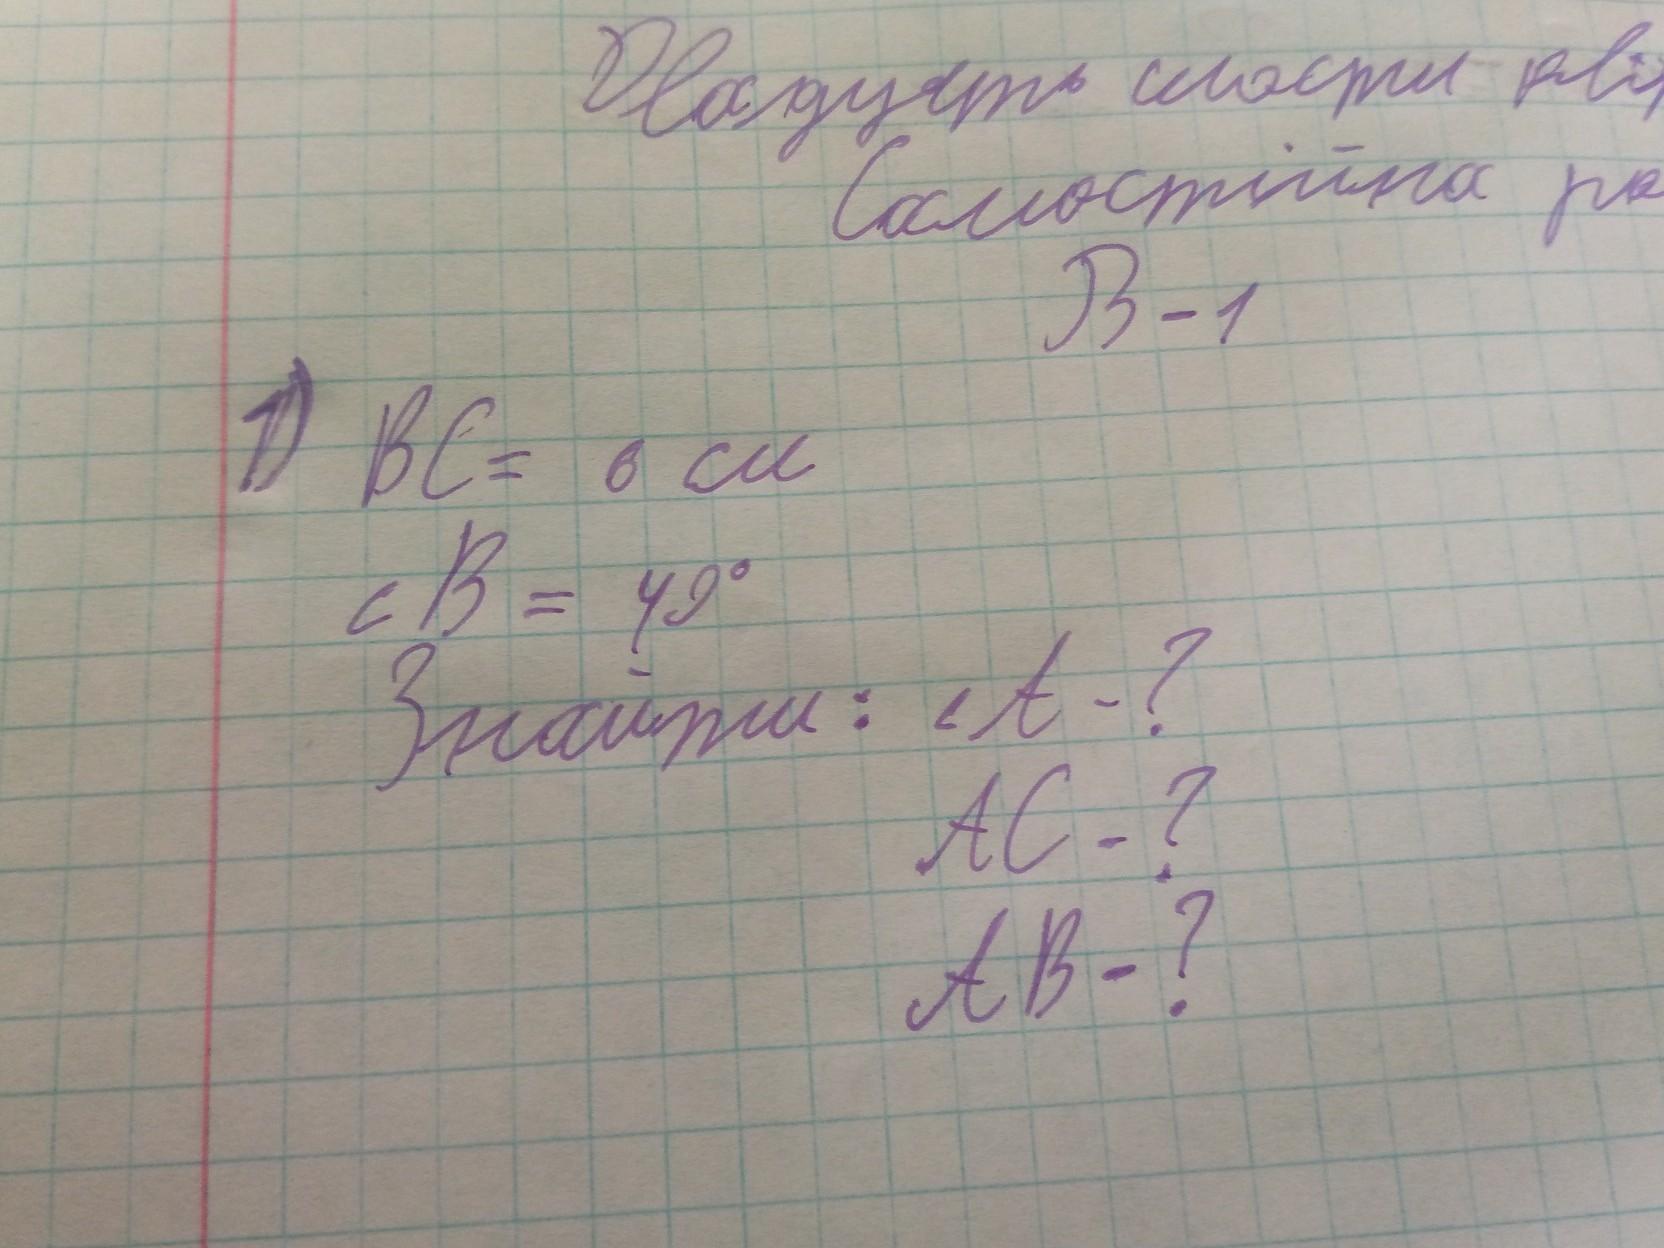 Двадцять шосте квіт
Самостійна ро
В-1
1) BC= 6 см
<B = 49°
Знайти: <A-?
AC-?
AB-?